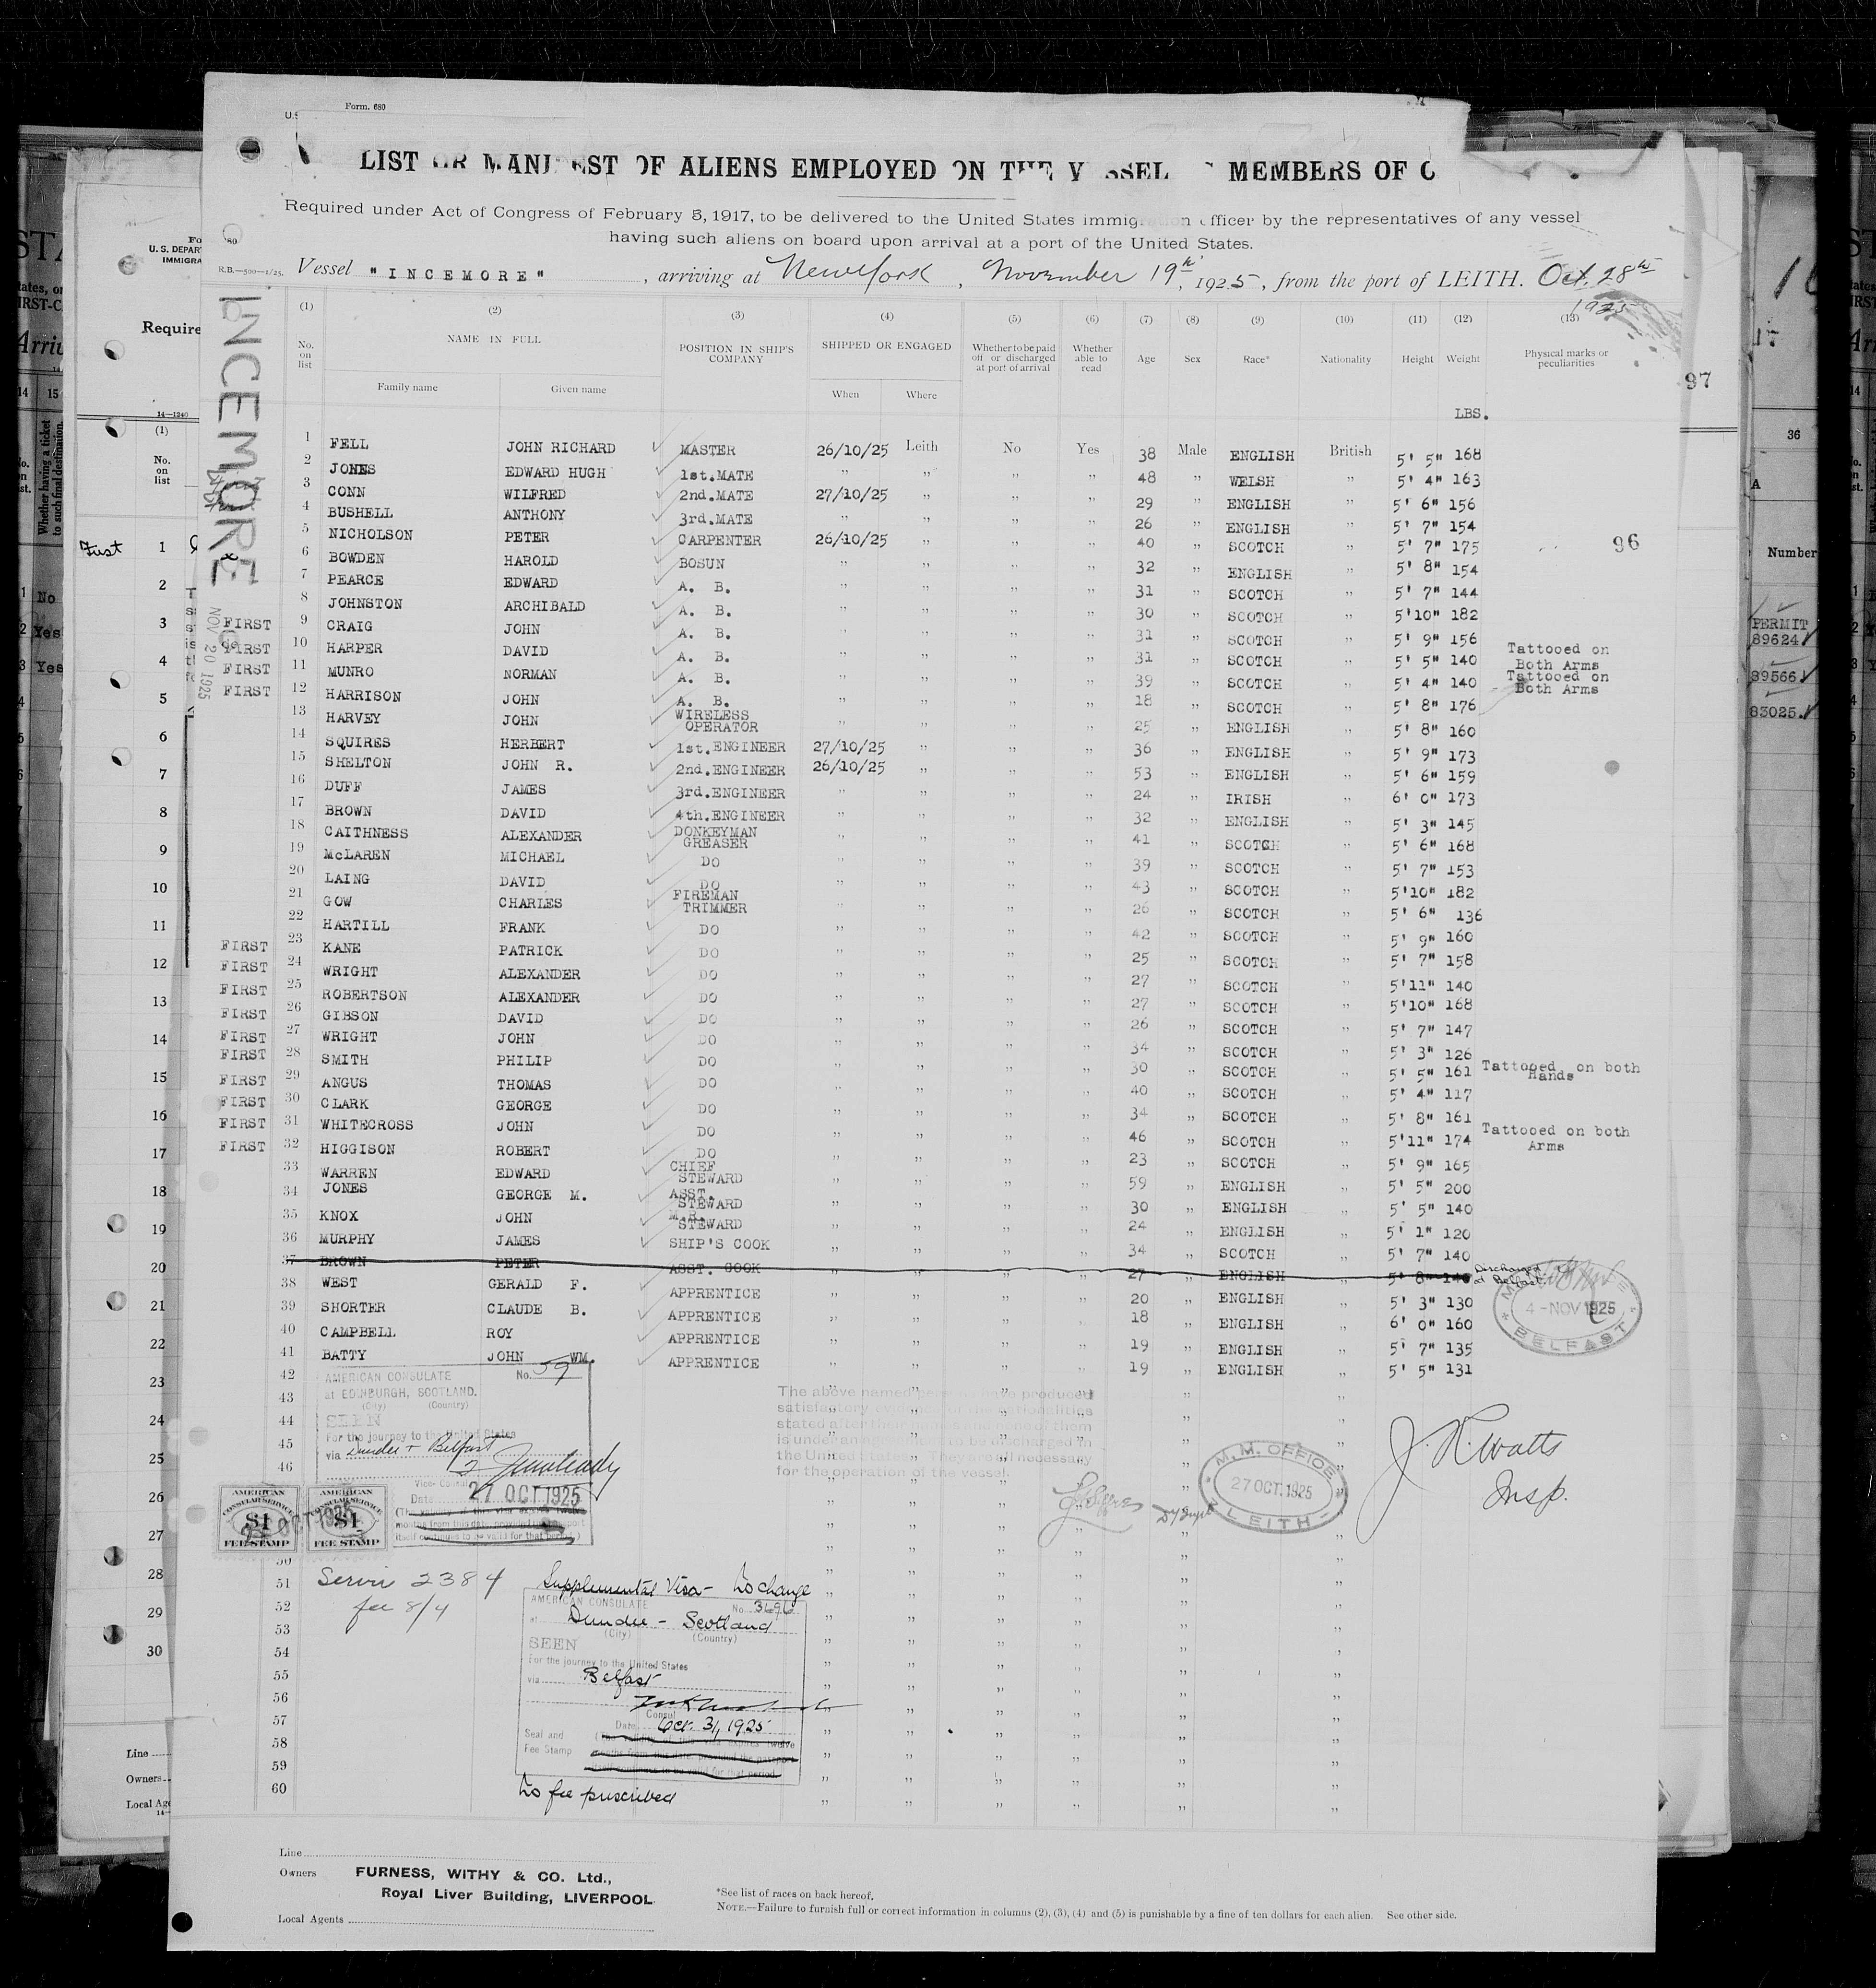 Form. 680
LIST OR MANIFEST OF ALIENS EMPLOYED ON THE VESSEL MEMBERS OF C
Required under Act of Congress of February 5, 1917, to be delivered to the United States immigration officer by the representatives of any vessel
having such aliens on board upon arrival at a port of the United States.
R.B.—500—1/25. Vessel "INCEMORE", arriving at New York, November 19th, 1925, from the port of LEITH. Oct. 28th
1925
INCEMORE
NOV 20 1925
(1) (2) (3) (4) (5) (6) (7) (8) (9) (10) (11) (12) (13)
No. on list NAME IN FULL POSITION IN SHIP'S COMPANY SHIPPED OR ENGAGED Whether to be paid off or discharged at port of arrival Whether able to read Age Sex Race* Nationality Height Weight Physical marks or peculiarities
Family name Given name When Where
LBS.
97
96
1 FELL JOHN RICHARD MASTER 26/10/25 Leith No Yes 38 Male ENGLISH British 5' 5" 168
2 JONES EDWARD HUGH 1st.MATE " " " " 48 " WELSH " 5' 4" 163
3 CONN WILFRED 2nd.MATE 27/10/25 " " " 29 " ENGLISH " 5' 6" 156
4 BUSHELL ANTHONY 3rd.MATE " " " " 26 " ENGLISH " 5' 7" 154
5 NICHOLSON PETER CARPENTER 26/10/25 " " " 40 " SCOTCH " 5' 7" 175
6 BOWDEN HAROLD BOSUN " " " " 32 " ENGLISH " 5' 8" 154
7 PEARCE EDWARD A. B. " " " " 31 " SCOTCH " 5' 7" 144
8 JOHNSTON ARCHIBALD A. B. " " " " 30 " SCOTCH " 5'10" 182
FIRST 9 CRAIG JOHN A. B. " " " " 31 " SCOTCH " 5' 9" 156
FIRST 10 HARPER DAVID A. B. " " " " 31 " SCOTCH " 5' 5" 140 Tattooed on Both Arms
FIRST 11 MUNRO NORMAN A. B. " " " " 39 " SCOTCH " 5' 4" 140 Tattooed on Both Arms
FIRST 12 HARRISON JOHN A. B. " " " " 18 " SCOTCH " 5' 8" 176
13 HARVEY JOHN WIRELESS OPERATOR " " " " 25 " ENGLISH " 5' 8" 160
14 SQUIRES HERBERT 1st.ENGINEER 27/10/25 " " " 36 " ENGLISH " 5' 9" 173
15 SHELTON JOHN R. 2nd.ENGINEER 26/10/25 " " " 53 " ENGLISH " 5' 6" 159
16 DUFF JAMES 3rd.ENGINEER " " " " 24 " IRISH " 6' 0" 173
17 BROWN DAVID 4th.ENGINEER " " " " 32 " ENGLISH " 5' 3" 145
18 CAITHNESS ALEXANDER DONKEYMAN GREASER " " " " 41 " SCOTCH " 5' 6" 168
19 McLAREN MICHAEL DO " " " " 39 " SCOTCH " 5' 7" 153
20 LAING DAVID DO " " " " 43 " SCOTCH " 5'10" 182
21 GOW CHARLES FIREMAN TRIMMER " " " " 26 " SCOTCH " 5' 6" 136
22 HARTILL FRANK DO " " " " 42 " SCOTCH " 5' 9" 160
FIRST 23 KANE PATRICK DO " " " " 25 " SCOTCH " 5' 7" 158
FIRST 24 WRIGHT ALEXANDER DO " " " " 27 " SCOTCH " 5'11" 140
FIRST 25 ROBERTSON ALEXANDER DO " " " " 27 " SCOTCH " 5'10" 168
FIRST 26 GIBSON DAVID DO " " " " 26 " SCOTCH " 5' 7" 147
FIRST 27 WRIGHT JOHN DO " " " " 34 " SCOTCH " 5' 3" 126
FIRST 28 SMITH PHILIP DO " " " " 30 " SCOTCH " 5' 5" 161 Tattooed on both Hands
FIRST 29 ANGUS THOMAS DO " " " " 40 " SCOTCH " 5' 4" 117
FIRST 30 CLARK GEORGE DO " " " " 34 " SCOTCH " 5' 8" 161
FIRST 31 WHITECROSS JOHN DO " " " " 46 " SCOTCH " 5'11" 174 Tattooed on both Arms
FIRST 32 HIGGISON ROBERT DO " " " " 23 " SCOTCH " 5' 9" 165
33 WARREN EDWARD CHIEF STEWARD " " " " 59 " ENGLISH " 5' 5" 200
34 JONES GEORGE M. ASST. STEWARD " " " " 30 " ENGLISH " 5' 5" 140
35 KNOX JOHN M.R. STEWARD " " " " 24 " ENGLISH " 5' 1" 120
36 MURPHY JAMES SHIP'S COOK " " " " 34 " SCOTCH " 5' 7" 140
37 BROWN PETER ASST. COOK " " " " 27 " ENGLISH " 5' 8" 140 Discharged at Belfast
38 WEST GERALD F. APPRENTICE " " " " 20 " ENGLISH " 5' 3" 130
39 SHORTER CLAUDE B. APPRENTICE " " " " 18 " ENGLISH " 6' 0" 160
40 CAMPBELL ROY APPRENTICE " " " " 19 " ENGLISH " 5' 7" 135
41 BATTY JOHN WM. APPRENTICE " " " " 19 " ENGLISH " 5' 5" 131
4-NOV 1925
BELFAST
42
43
44
45
46
AMERICAN CONSULATE No. 59
at EDINBURGH, SCOTLAND.
(City) (Country)
SEEN
For the journey to the United States
via Dundee + Belfast
Vice-Consul
Date 27 OCT 1925
The above named persons have produced
satisfactory evidence of the nationalities
stated after their names and none of them
is under an agreement to be discharged in
the United States. They are all necessary
for the operation of the vessel.
M. M. OFFICE
27 OCT. 1925
LEITH
J. R. Watts
Insp.
AMERICAN CONSULAR SERVICE $1 FEE STAMP
AMERICAN CONSULAR SERVICE $1 FEE STAMP
51
52
53
54
55
56
57
58
59
60
Service 2384
fee 8/4
Supplemental Visa - No change
AMERICAN CONSULATE No. 3696
at Dundee - Scotland
(City) (Country)
SEEN
For the journey to the United States
via Belfast
Consul
Date Oct. 31, 1925
Seal and
Fee Stamp
No fee prescribed
Line
Owners FURNESS, WITHY & CO. Ltd.,
Royal Liver Building, LIVERPOOL
Local Agents
*See list of races on back hereof.
NOTE.—Failure to furnish full or correct information in columns (2), (3), (4) and (5) is punishable by a fine of ten dollars for each alien. See other side.
U. S. DEPAR
IMMIGRA
Require
14—1240
(1)
No. on list
First 1
2
3
4
5
6
7
8
9
10
11
12
13
14
15
16
17
18
19
20
21
22
23
24
25
26
27
28
29
30
Line
Owners
Local Age
36
Number
PERMIT
89624
89566
83025